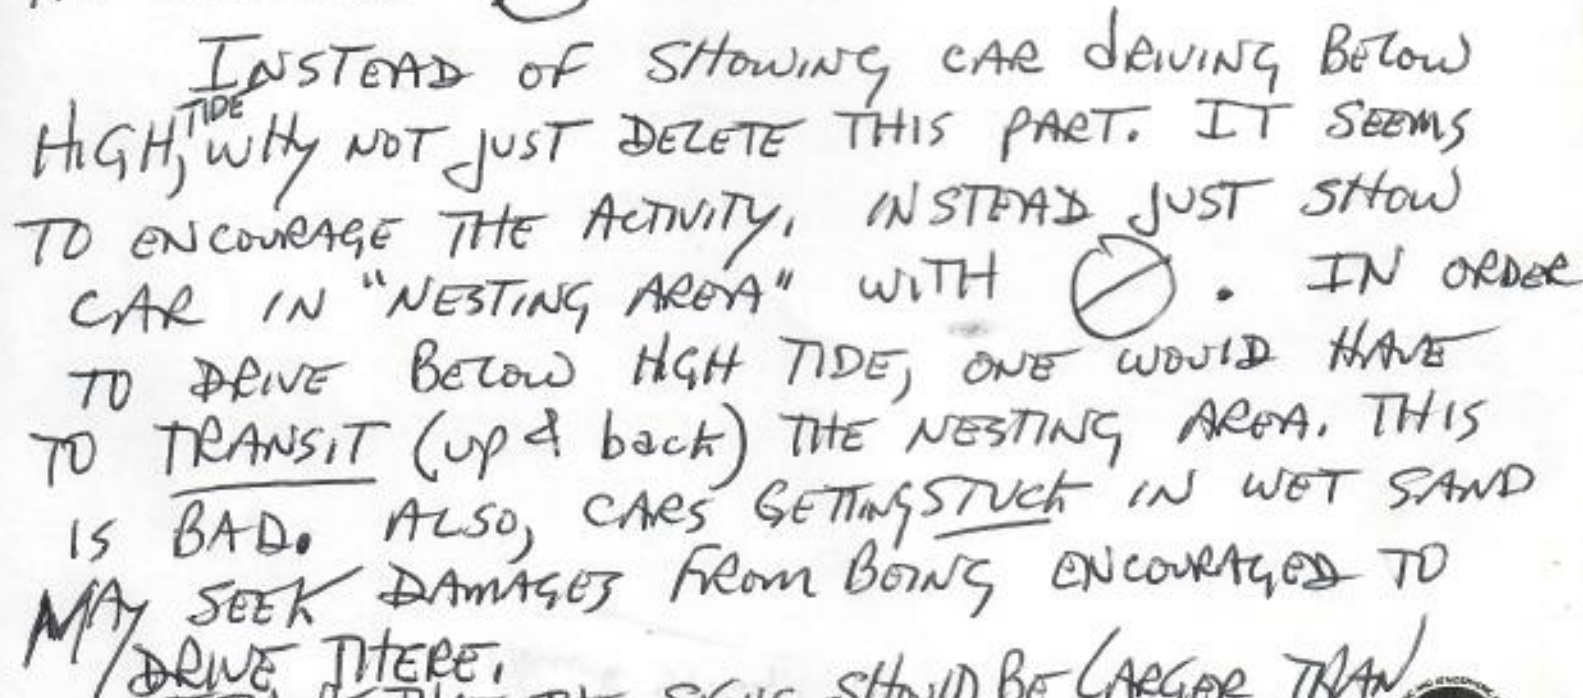 INSTEAD OF SHOWING CAR dRIVING BELOW
TIDE
HIGH, WHY NOT JUST DELETE THIS PART. IT SEEMS
TO ENCOURAGE THE ACTIVITY. INSTEAD JUST SHOW
CAR IN "NESTING AREA" WITH . IN ORDER
TO DRIVE BELOW HGH TIDE, ONE WOULD HAVE
TO TRANSIT (up & back) THE NESTING AREA. THIS
IS BAD. ALSO, CARS GETTING STUCK IN WET SAND
MAY SEEK DAMAGES FROM BEING ENCOURAGED TO
DRIVE THERE.
SIGNS SHOULD BE LARGER THAN